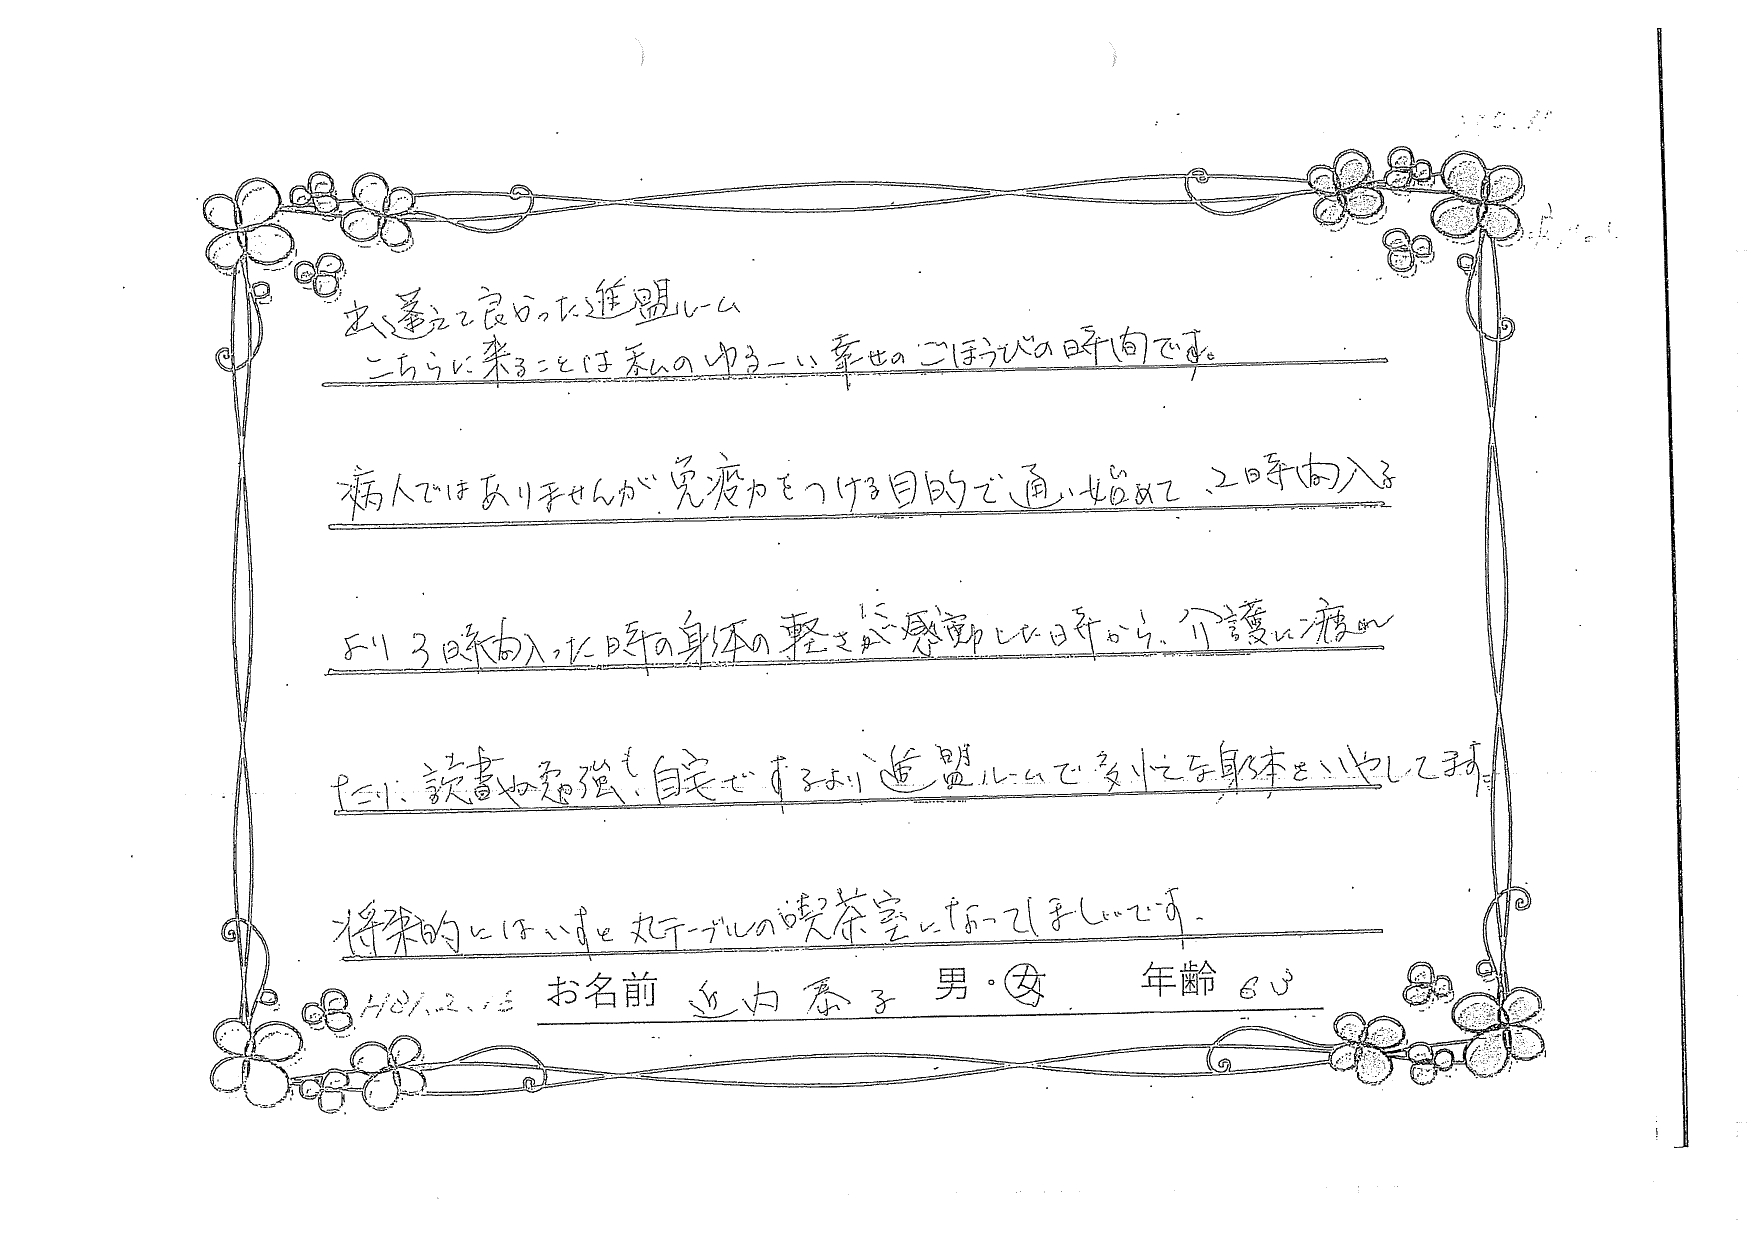 出逢えて良かった進盟ルーム
こちらに来ることは私のゆるーい幸せのごほうびの時間です。
病人ではありませんが免疫力をつける目的で通い始めて、2時間入る
より3時間入った時の身体の軽さに感動した時から、介護に疲れ
たり、読書や勉強も、自宅でするより進盟ルームで多忙な身体をいやしてます。
将来的にはいすと丸テーブルの喫茶室になってほしいです。
お名前 近内泰子 男・女 年齢 63